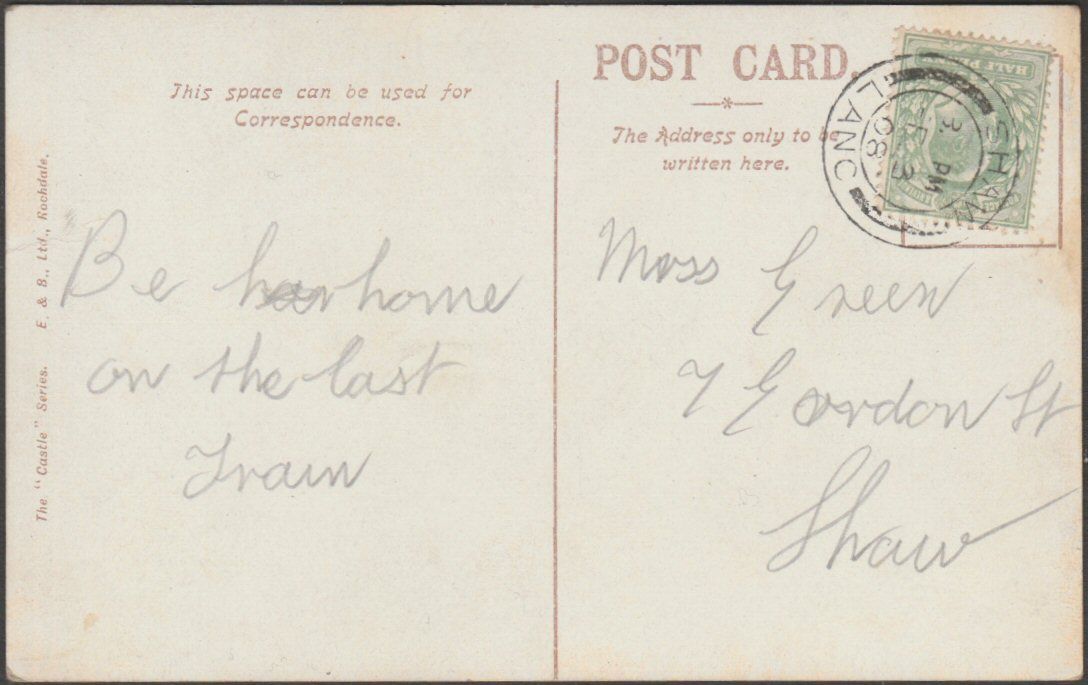 This space can be used for
Correspondence.
Be home
on the last
Train
The "Castle" Series. E. & S., Ltd., Rochdale.
POST CARD.
The Address only to be
written here.
Miss Green
7 Gordon St
Shaw
HALF PENNY
SHAW
LANC
PM
08